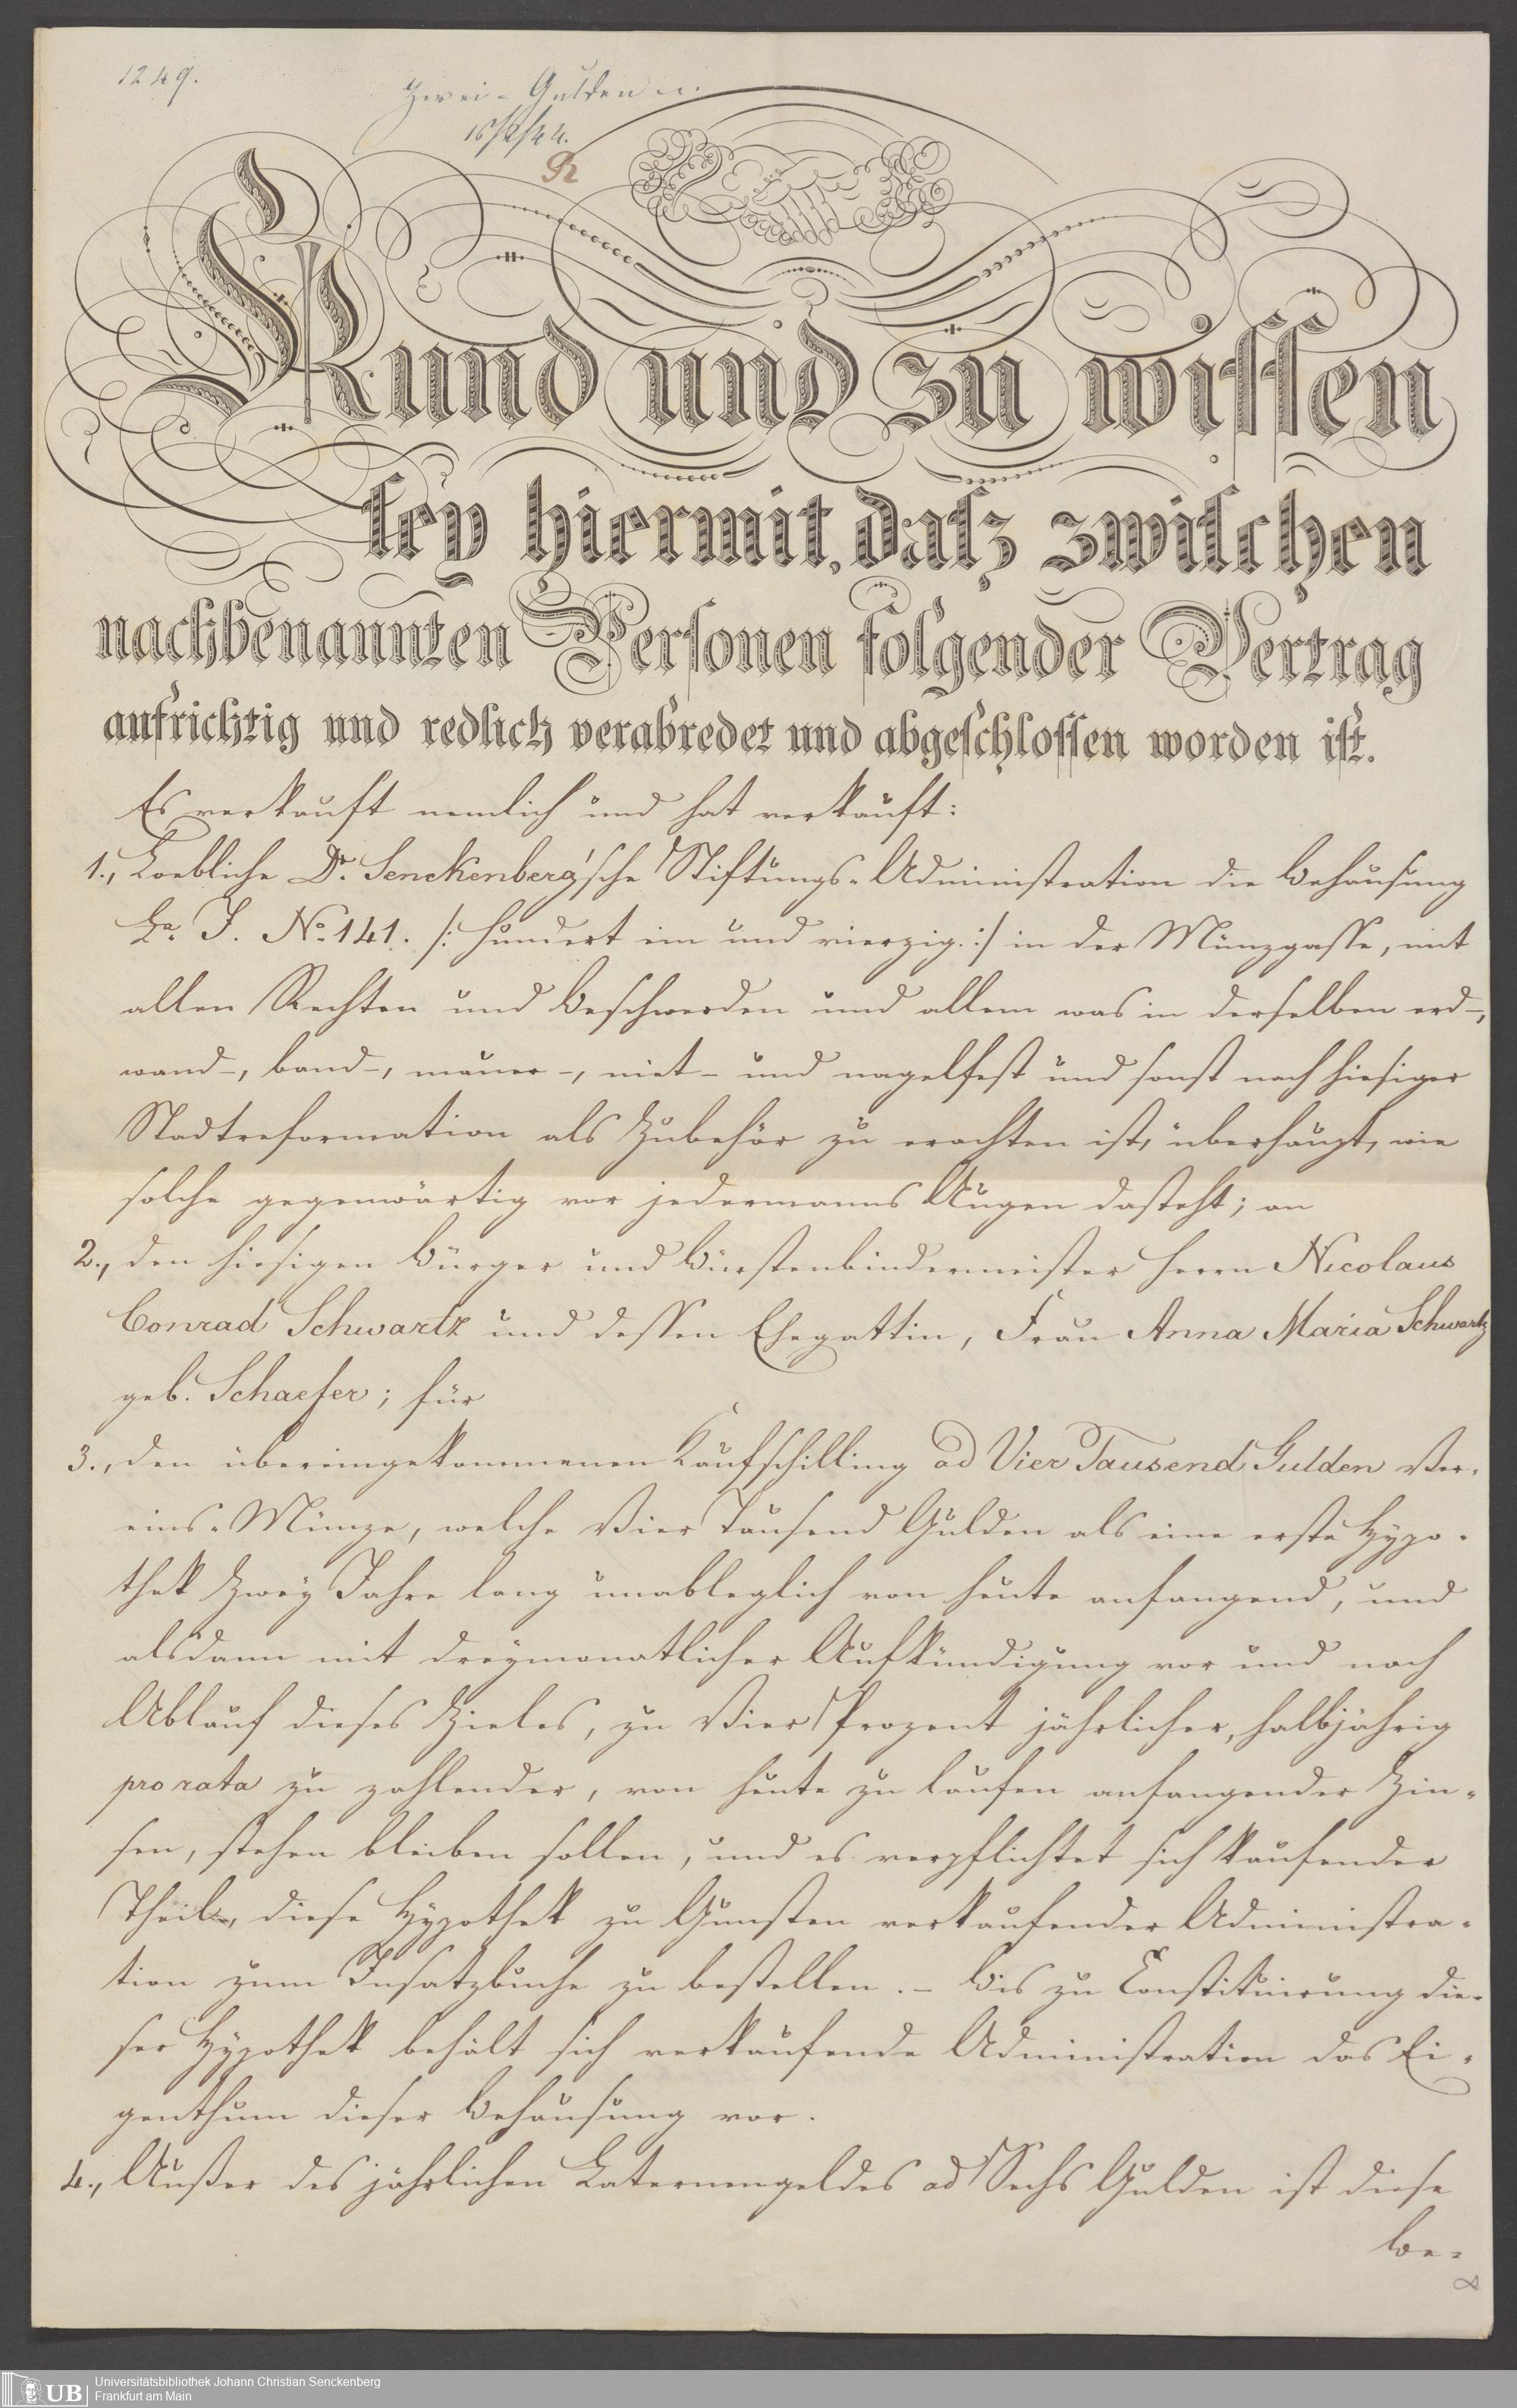 1249.
Zwei Gulden
Kund und zu wissen
sey hiermit, dasz zwischen
nachbenannten Personen folgender Vertrag
aufrichtig und redlich verabredet und abgeschlossen worden ist.
Es verkauft nemlich und hat verkauft:
1., Loebliche Dr. Senckenberg'sche Stiftungs-Administration die Behausung
La. J. No. 141. /: Hundert ein und vierzig :/ in der Münzgasse, mit
allen Rechten und Beschwerden und allem was in derselben erd-,
wand-, band-, mauer-, niet- und nagelfest und sonst nach hiesiger
Stadtreformation als Zubehör zu erachten ist, überhaupt, wie
solche gegenwärtig vor jedermanns Augen dasteht; an
2., den hiesigen Bürger und Bürstenbindermeister Herrn Nicolaus
Conrad Schwartz und dessen Ehegattin, Frau Anna Maria Schwartz
geb. Schaefer; für
3., den übereingekommenen Kaufschilling ad Vier Tausend Gulden Ver-
eins-Münze, welche Vier Tausend Gulden als eine erste Hypo-
thek Zwey Jahre lang unableglich von heute anfangend, und
alsdann mit dreymonatlicher Aufkündigung vor und nach
Ablauf dieses Zieles, zu Vier Prozent jährlicher, halbjährig
pro rata zu zahlender, von heute zu laufen anfangender Zin-
sen, stehen bleiben sollen, und es verpflichtet sich kaufender
Theil, diese Hypothek zu Gunsten verkaufender Administra-
tion zum Insatzbuche zu bestellen. - Bis zu Constituirung die-
ser Hypothek behält sich verkaufende Administration das Ei-
genthum dieser Behausung vor.
4., Außer des jährlichen Laternengeldes ad Sechs Gulden ist diese
Be-
UB Universitätsbibliothek Johann Christian Senckenberg
Frankfurt am Main